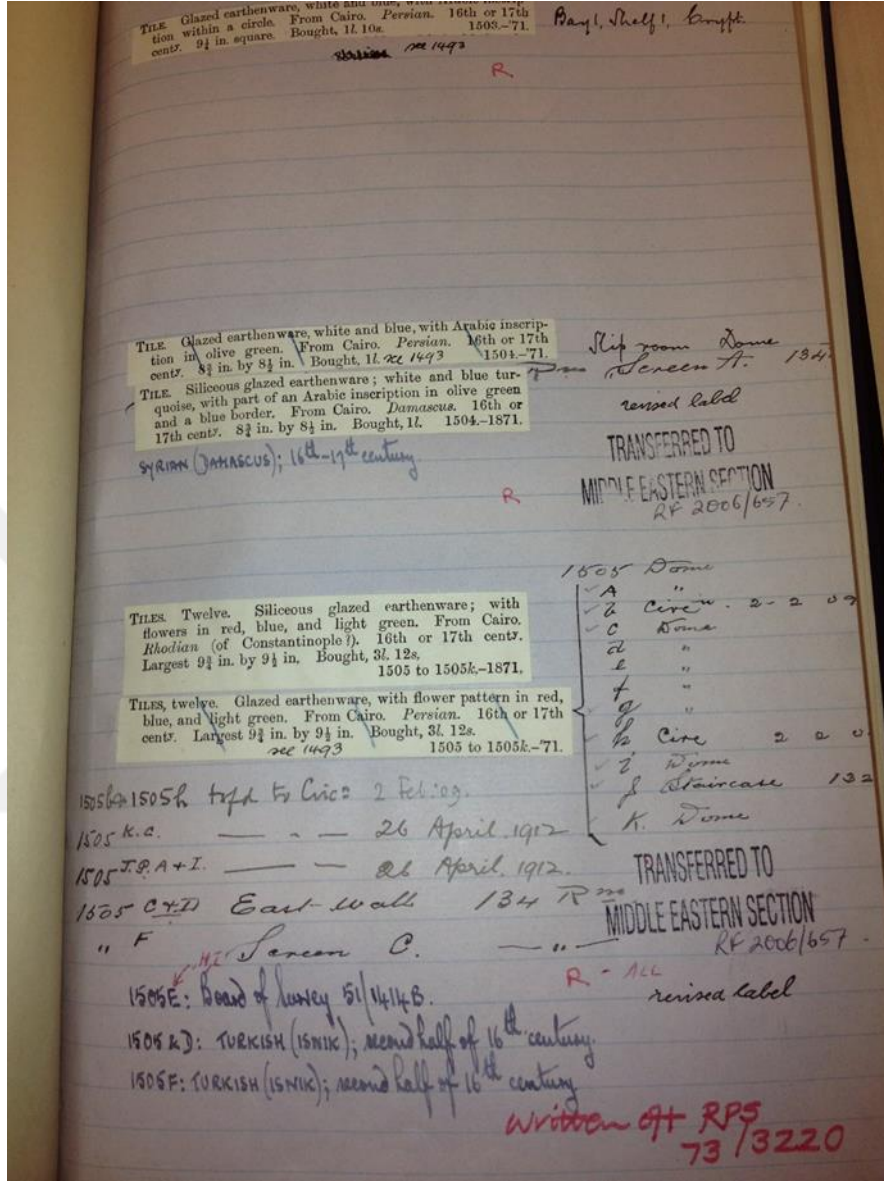 TILE. Glazed earthenware, white and blue, with Arabic inscrip-
tion within a circle. From Cairo. Persian. 16th or 17th
centy. 9¼ in. square. Bought, 1l. 10s. 1503.-'71.
see 1493
Bay 1, Shelf 1, Crypt.
R
TILE. Glazed earthenware, white and blue, with Arabic inscrip-
tion in olive green. From Cairo. Persian. 16th or 17th
centy. 8¾ in. by 8½ in. Bought, 1l. see 1493 1504.-'71.
TILE. Siliceous glazed earthenware; white and blue tur-
quoise, with part of an Arabic inscription in olive green
and a blue border. From Cairo. Damascus. 16th or
17th centy. 8¾ in. by 8½ in. Bought, 1l. 1504.-1871.
SYRIAN (DAMASCUS); 16th-17th century
Slip room Dome
Rm Screen A. 134
revised label
TRANSFERRED TO
MIDDLE EASTERN SECTION
RF 2006/657.
R
TILES. Twelve. Siliceous glazed earthenware; with
flowers in red, blue, and light green. From Cairo.
Rhodian (of Constantinople?). 16th or 17th centy.
Largest 9¾ in. by 9½ in. Bought, 3l. 12s.
1505 to 1505k.-1871.
TILES, twelve. Glazed earthenware, with flower pattern in red,
blue, and light green. From Cairo. Persian. 16th or 17th
centy. Largest 9¾ in. by 9½ in. Bought, 3l. 12s.
see 1493 1505 to 1505k.-'71.
1505 Dome
A "
b Circn. 2-2 09
c Dome
d "
e "
f "
g "
h Circ 2 2 0
i Dome
j Staircase 132
K. Dome
1505b 1505h tsfd to Circ: 2 Feb: 09.
1505 K.G. — " — 26 April 1912
1505 J.P. A + I. — — 26 April 1912.
1505 C + D East wall 134 Rm
" F Screen C. — " —
TRANSFERRED TO
MIDDLE EASTERN SECTION
RF 2006/657.
R - ALL
revised label
1505E: Board of Survey 51/1414B.
1505 & D: TURKISH (ISNIK); second half of 16th century.
1505F: TURKISH (ISNIK); second half of 16th century
Written off RPS
73/3220